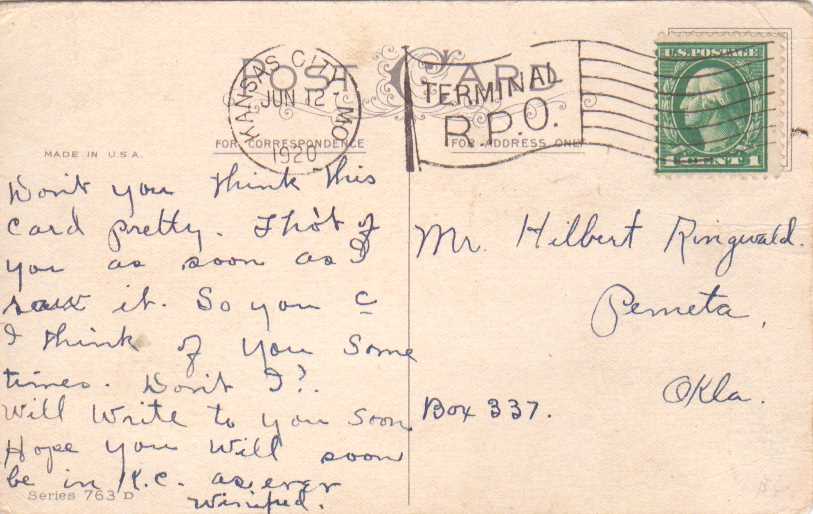 POST CARD
KANSAS CITY, MO.
JUN 12
1920
TERMINAL
R.P.O.
U.S. POSTAGE
1 CENT 1
MADE IN U.S.A.
FOR CORRESPONDENCE
FOR ADDRESS ONLY
Don't you think this
card pretty. I thot of
you as soon as I
saw it. So you c
I think of you some
times. Don't I?
Will write to you soon
Hope you will soon
be in K.C. as ever
Winifred.
Mr. Hilbert Ringwald.
Pemeta,
Okla.
Box 337.
Series 763 D